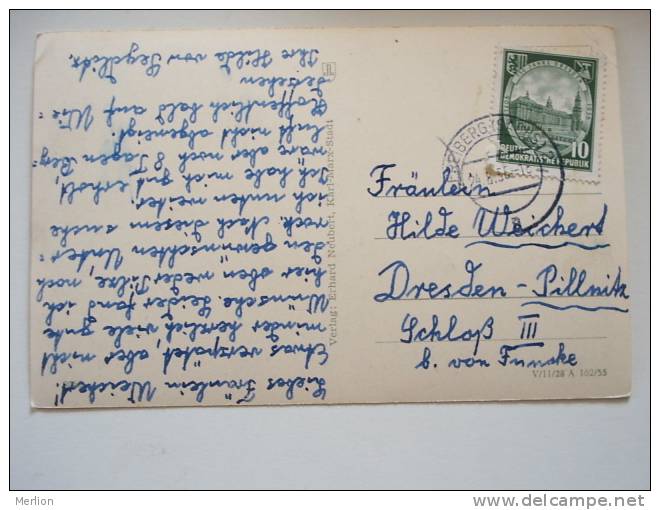 Liebes Fräulein Weichert!
Etwas verspätet, aber nicht
minder herzlich viele gute
Wünsche. Leider fand ich
hier oben weder Pilze, noch
den gewünschten Unter=
rock. Nach diesem suche
ich unten weiter.
Ich habe mich gut erholt,
wäre aber noch 8 Tagen Berg=
luft nicht abgeneigt.
Hoffentlich bald auf Wie=
dersehen
Ihre Hilde von
Verlag: Erhard Neubert, Karl-Marx-Stadt
DEUTSCHE
DEMOKRATISCHE REPUBLIK
10
Fräulein
Hilde Weichert
Dresden - Pillnitz
Schloß III
b. von Funcke
V/11/28 A 162/55
Merlion
www.delcampe.net